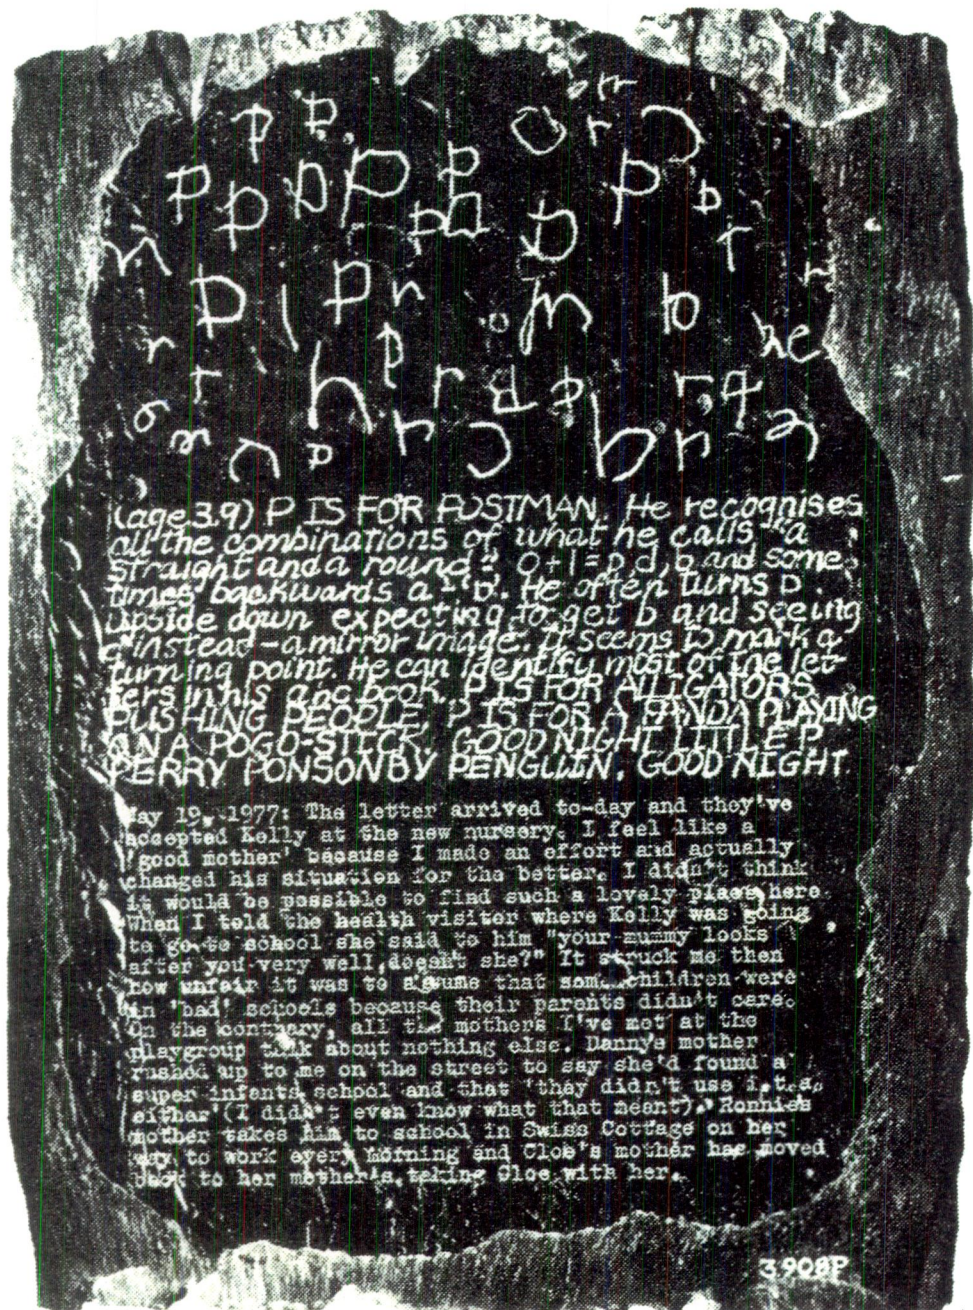 (age 3.9) P IS FOR POSTMAN. He recognises
all the combinations of what he calls "a
straight and a round": O+l=p,d,b and some-
times backwards a = 'b'. He often turns p
upside down expecting to get b and seeing
d instead - a mirror image. It seems to mark a
turning point. He can identify most of the let-
ters in his abc book. P IS FOR ALLIGATORS
PUSHING PEOPLE. P IS FOR A PANDA PLAYING
ON A POGO-STICK. GOOD NIGHT LITTLE P
PERRY PONSONBY PENGUIN. GOOD NIGHT
May 19, 1977: The letter arrived to-day and they've
accepted Kelly at the new nursery. I feel like a
'good mother' because I made an effort and actually
changed his situation for the better. I didn't think
it would be possible to find such a lovely place here
When I told the health visitor where Kelly was going
to go to school she said to him "your mummy looks
after you very well, doesn't she?" It struck me then
how unfair it was to assume that some children were
in 'bad' schools because their parents didn't care.
On the contrary, all the mothers I've met at the
playgroup talk about nothing else. Danny's mother
rushed up to me on the street to say she'd found a
super infants school and that 'they didn't use i.t.a.
either' (I didn't even know what that meant). Ronnie's
mother takes him to school in Swiss Cottage on her
way to work every morning and Cloe's mother has moved
back to her mother's, taking Cloe with her.
3908P